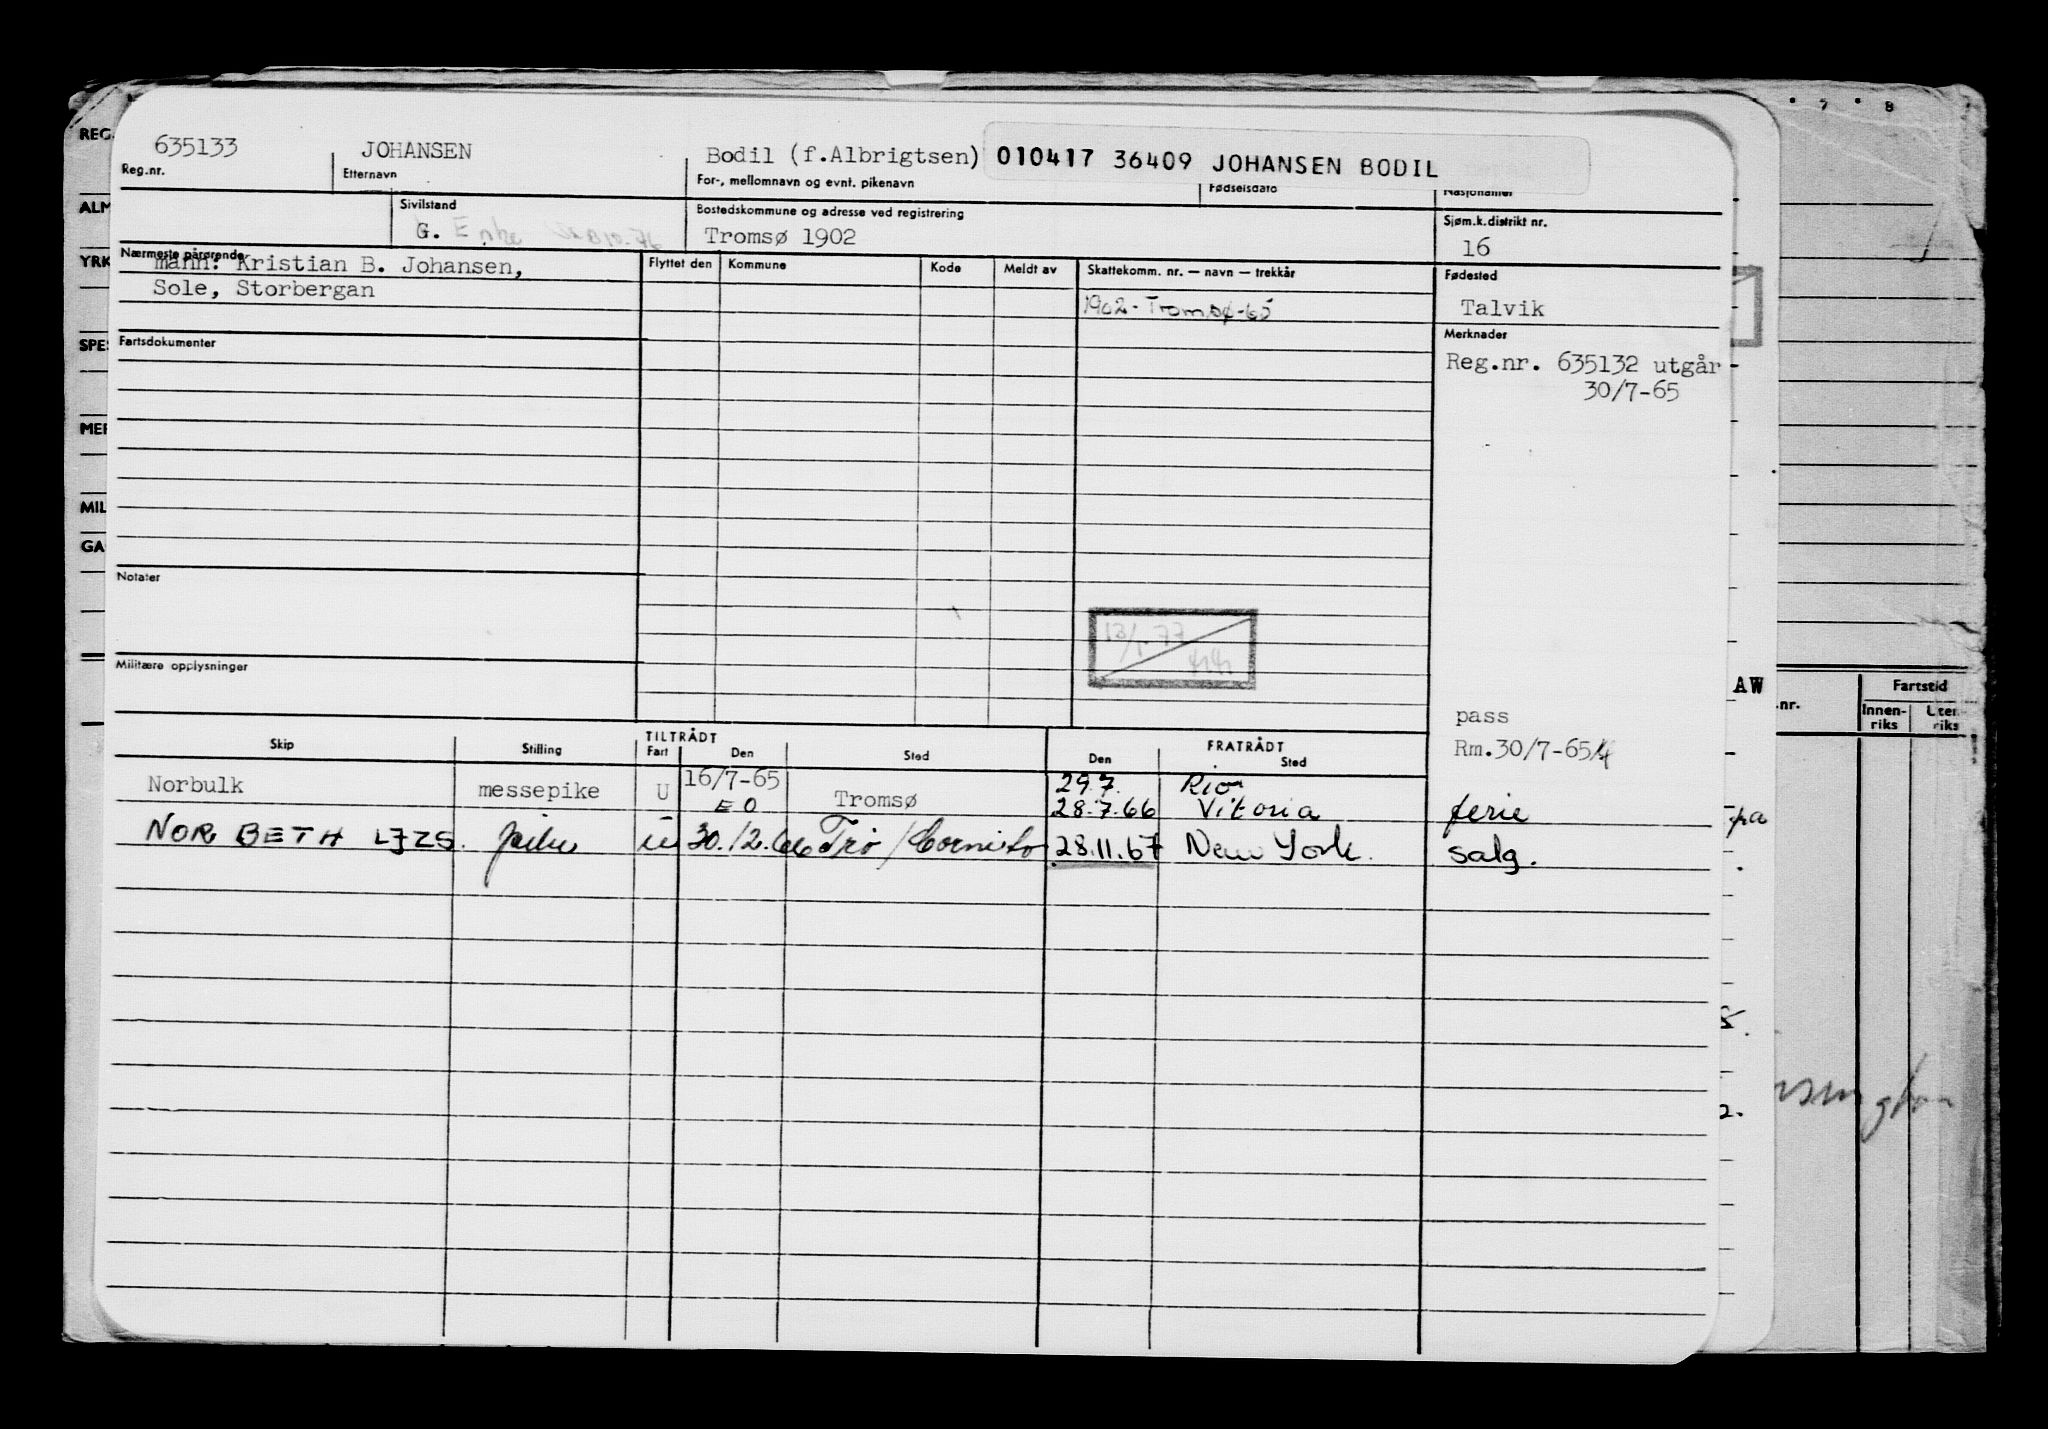 635133 JOHANSEN Bodil (f.Albrigtsen) 010417 36409 JOHANSEN BODIL
Reg.nr. Etternavn For-, mellomnavn og evnt. pikenavn Fødselsdato Nasjonalitet
Sivilstand Bostedskommune og adresse ved registrering Sjøm.k.distrikt nr.
G. Enke Tromsø 1902 16
Nærmeste pårørende Flyttet den Kommune Kode Meldt av Skattekomm. nr. — navn — trekkår Fødested
mann: Kristian B. Johansen,
Sole, Storbergan 1902 - Tromsø-65 Talvik
Fartsdokumenter Merknader
Reg.nr. 635132 utgår
30/7-65
Notater
13/1-77
Militære opplysninger
pass
Rm.30/7-65
TILTRÅDT FRATRÅDT
Skip Stilling Fart Den Sted Den Sted
Norbulk messepike U 16/7-65 Tromsø 29.7. Rio
E O 28.7.66 Vitoria ferie
NOR BETH LJZS. pike u 30.12.66 Trø / 28.11.67 New York. salg.
REG.
ALM
YRK
SPES
MER
MIL
GA
7 8
AW
.nr. Fartstid
Innen-riks Uten-riks
pa